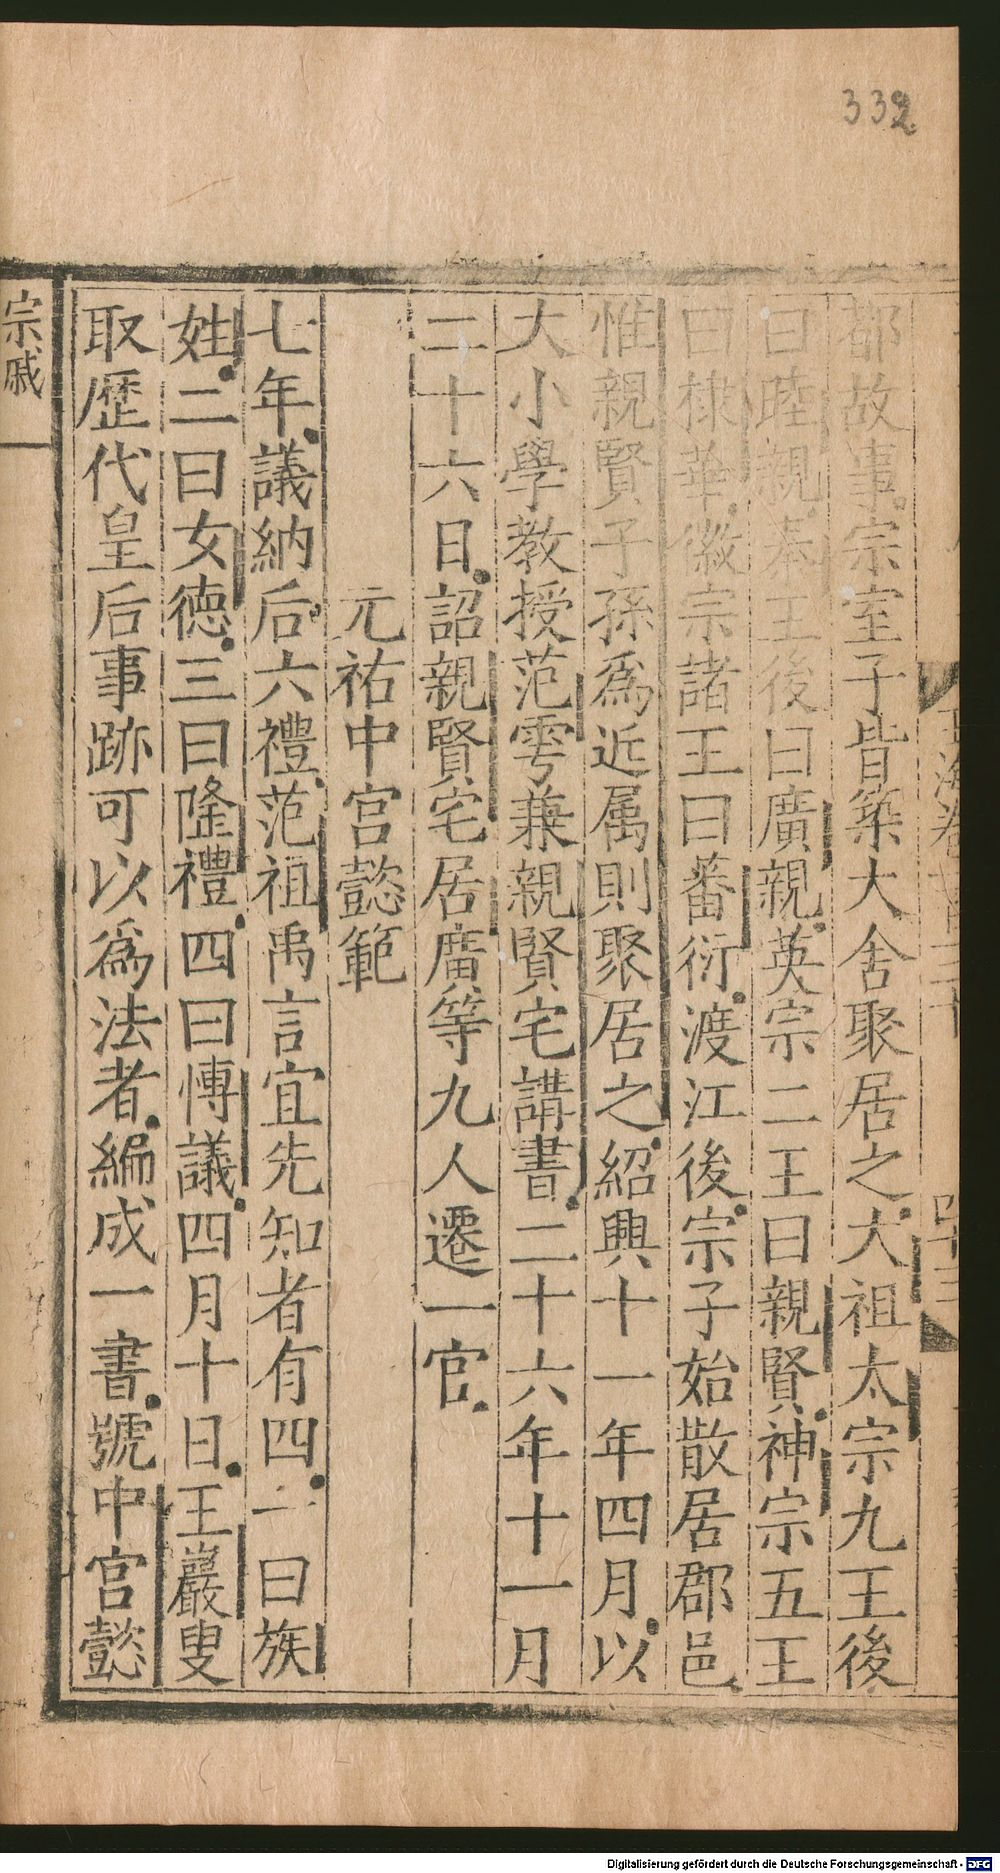 332
都故事宗室子皆築大舍聚居之大祖太宗九王後
曰睦親秦王後曰廣親英宗二王曰親賢神宗五王
曰棣華徽宗諸王曰蕃衍渡江後宗子始散居郡邑
惟親賢子孫爲近属則聚居之紹興十一年四月以
大小學教授范雩兼親賢宅講書二十六年十一月
二十六日詔親賢宅居廣等九人遷一官
元祐中宫懿範
七年議納后六禮范祖禹言宜先知者有四一曰族
姓二曰女德三曰隆禮四曰博議四月十日王巖叟
取歷代皇后事跡可以爲法者編成一書號中宫懿
宗戚
Digitalisierung gefördert durch die Deutsche Forschungsgemeinschaft - DFG